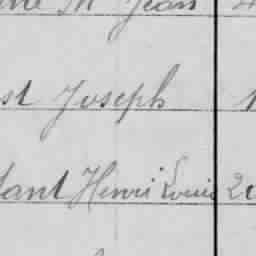 Jean
st Joseph 1
tant Henri Louis 20